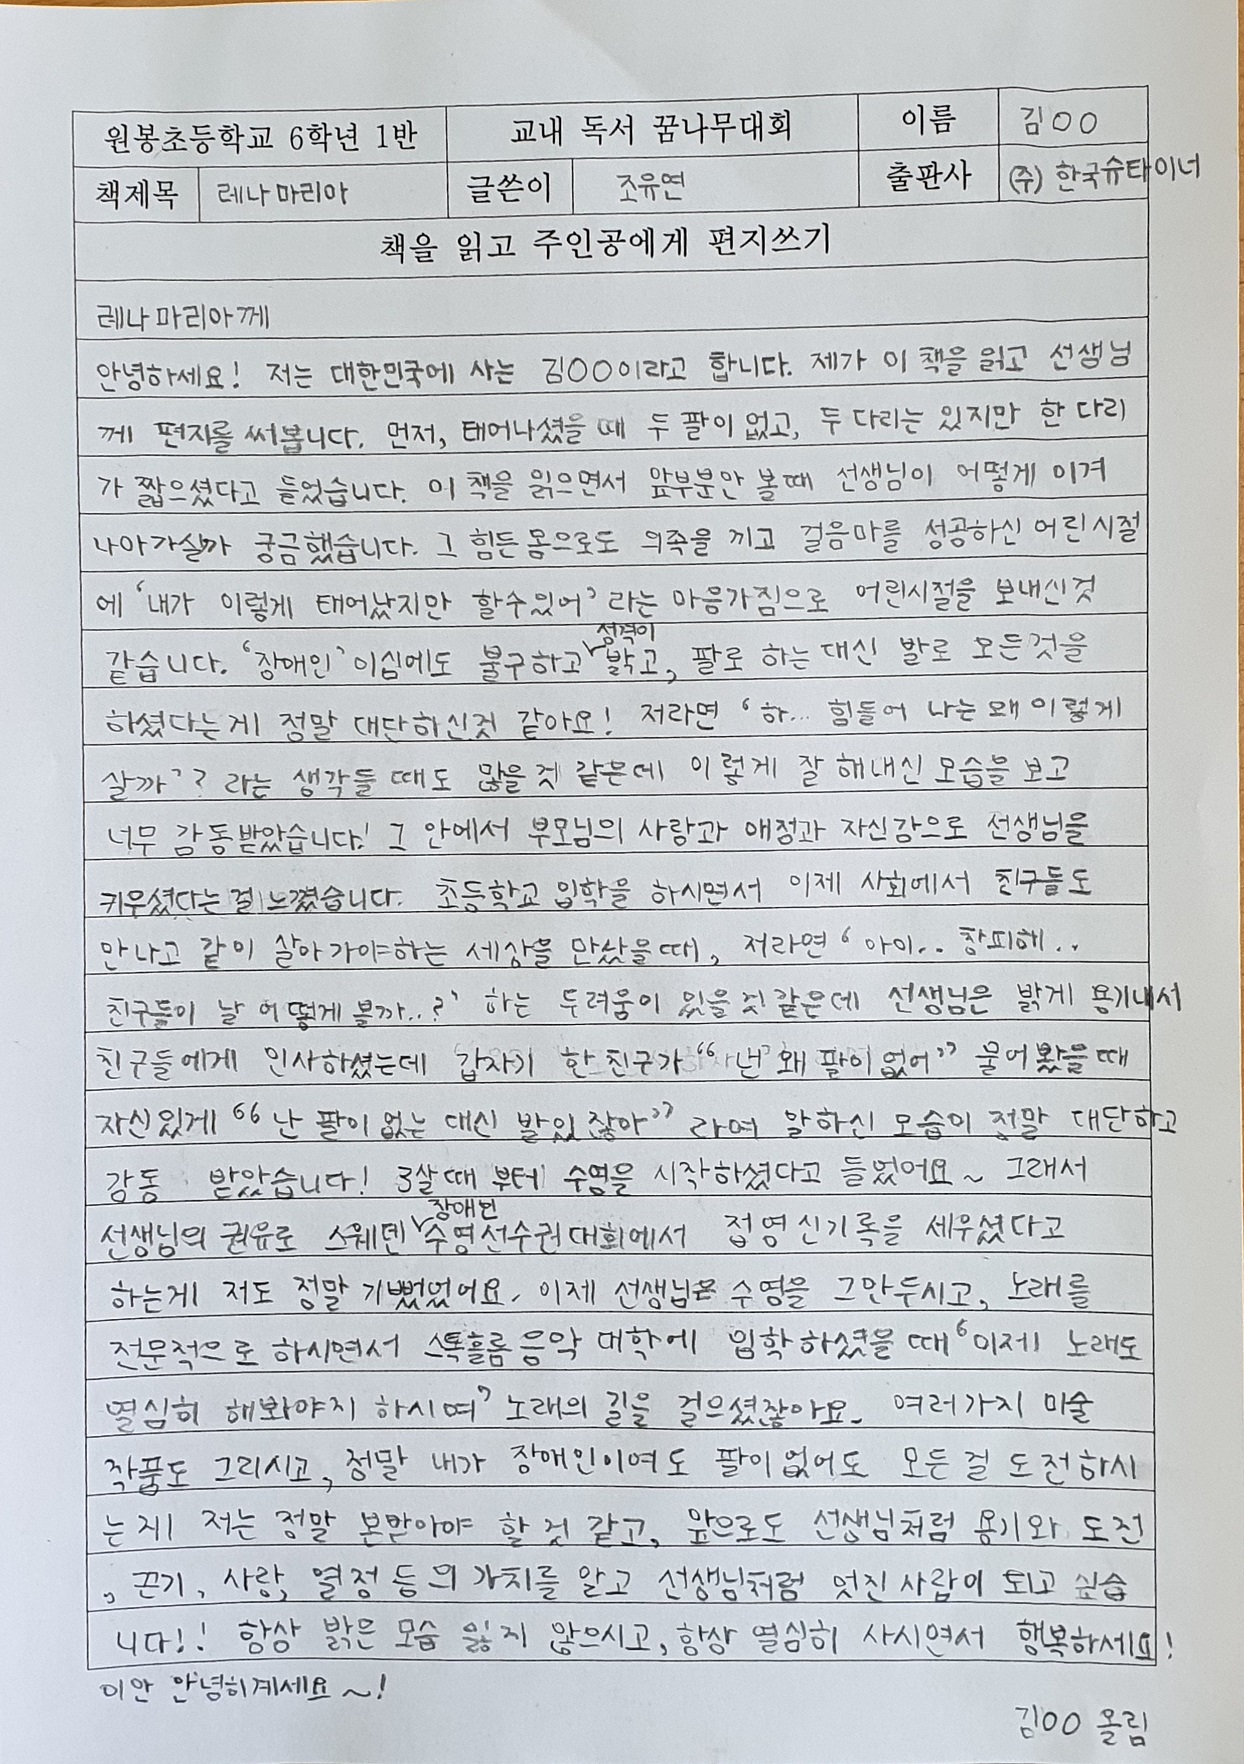 원봉초등학교 6학년 1반 교내 독서 꿈나무대회 이름 김○○
책제목 레나 마리아 글쓴이 조유연 출판사 (주) 한국슈타이너
책을 읽고 주인공에게 편지쓰기
레나 마리아께
안녕하세요! 저는 대한민국에 사는 김○○이라고 합니다. 제가 이 책을 읽고 선생님
께 편지를 써봅니다. 먼저, 태어나셨을 때 두 팔이 없고, 두 다리는 있지만 한 다리
가 짧으셨다고 들었습니다. 이 책을 읽으면서 앞부분만 볼때 선생님이 어떻게 이겨
나아가실까 궁금했습니다. 그 힘든 몸으로도 의족을 끼고 걸음마를 성공하신 어린시절
에 '내가 이렇게 태어났지만 할수있어' 라는 마음가짐으로 어린시절을 보내신것
같습니다. '장애인' 이심에도 불구하고 성격이 밝고, 팔로 하는 대신 발로 모든것을
하셨다는게 정말 대단하신것 같아요! 저라면 '하... 힘들어 나는 왜 이렇게
살까'? 라는 생각들 때도 많을 것 같은데 이렇게 잘 해내신 모습을 보고
너무 감동받았습니다! 그 안에서 부모님의 사랑과 애정과 자신감으로 선생님을
키우셨다는걸 느꼈습니다. 초등학교 입학을 하시면서 이제 사회에서 친구들도
만나고 같이 살아가야하는 세상을 만났을때, 저라면 '아이.. 창피해..
친구들이 날 어떻게 볼까..?' 하는 두려움이 있을것 같은데 선생님은 밝게 용기내서
친구들에게 인사하셨는데 갑자기 한 친구가 "넌 왜 팔이 없어" 물어봤을때
자신있게 "난 팔이 없는 대신 발있잖아" 라며 말하신 모습이 정말 대단하고
감동 받았습니다! 3살때 부터 수영을 시작하셨다고 들었어요~ 그래서
선생님의 권유로 스웨덴 장애인 수영선수권대회에서 접영 신기록을 세우셨다고
하는게 저도 정말 기뻤었어요. 이제 선생님은 수영을 그만두시고, 노래를
전문적으로 하시면서 스톡홀름 음악 대학에 입학하셨을 때 '이제 노래도
열심히 해봐야지 하시며' 노래의 길을 걸으셨잖아요. 여러가지 미술
작품도 그리시고, 정말 내가 장애인이여도 팔이 없어도 모든걸 도전하시
는게 저는 정말 본받아야 할 것 같고, 앞으로도 선생님처럼 용기와 도전
, 끈기, 사랑, 열정 등의 가치를 알고 선생님처럼 멋진 사람이 되고 싶습
니다!! 항상 밝은 모습 잃지 않으시고, 항상 열심히 사시면서 행복하세요!
이만 안녕히계세요~!
김○○ 올림